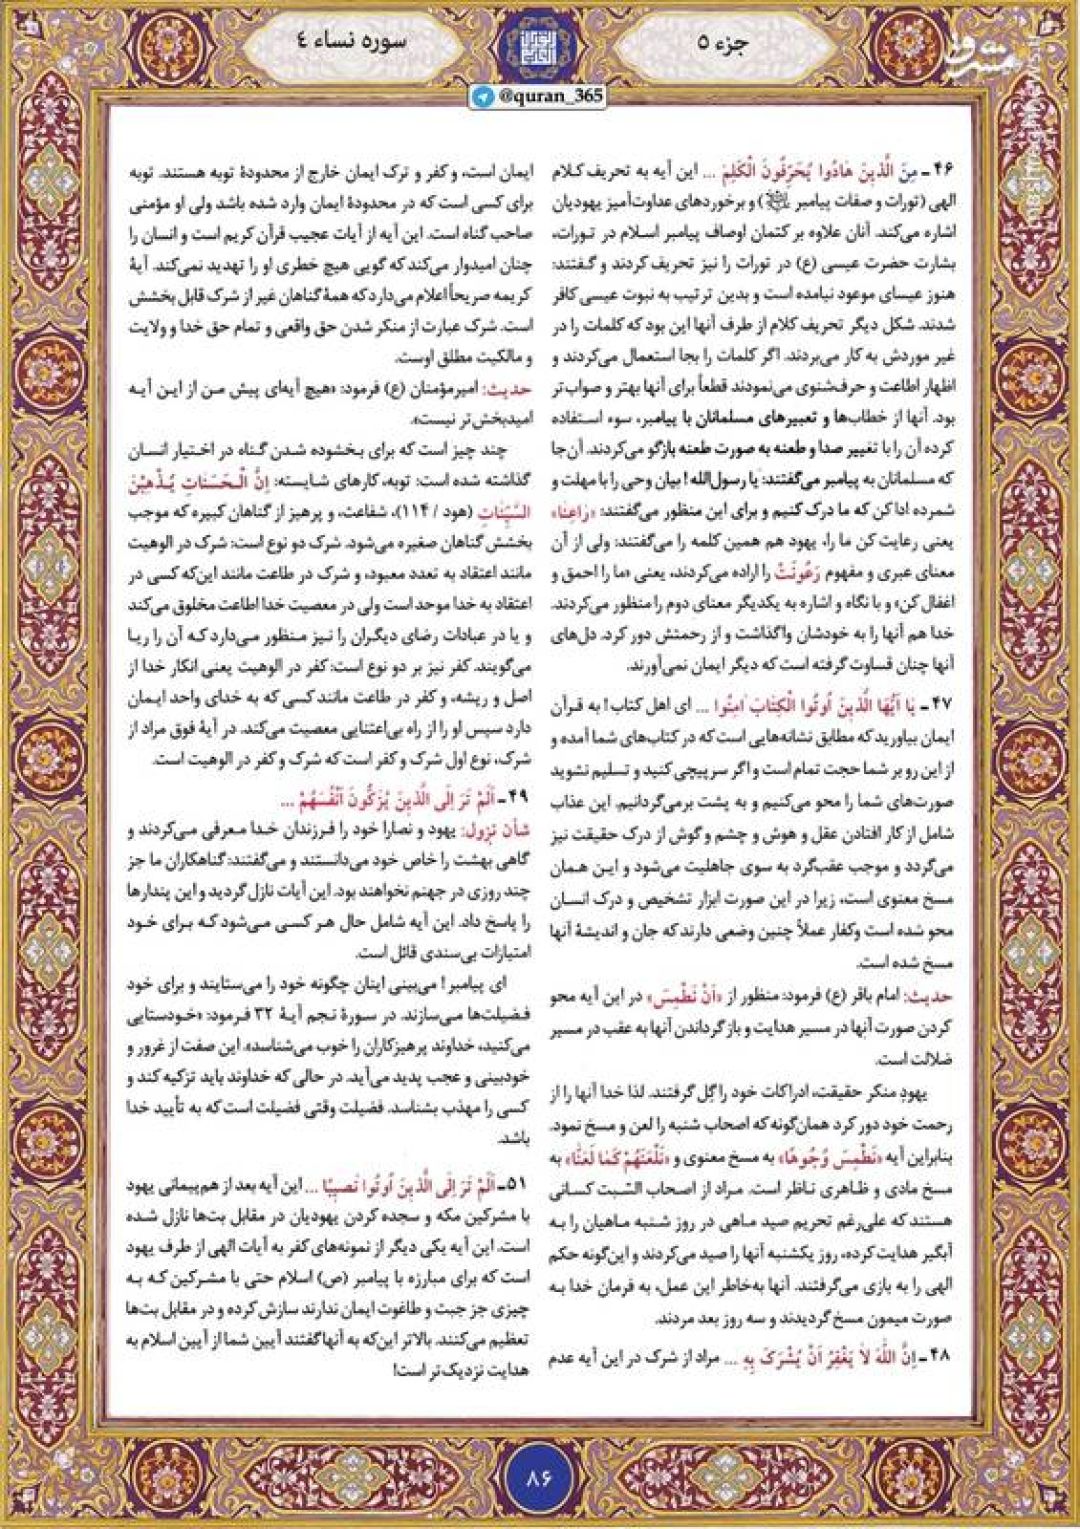 جزء ۵
سوره نساء ۴
@quran_365
مشرق
۴۶ـ مِنَ الَّذِینَ هَادُوا یُحَرِّفُونَ الْکَلِمَ ... این آیه به تحریف کلام
الهی (تورات و صفات پیامبر ﷺ) و برخوردهای عداوت‌آمیز یهودیان
اشاره می‌کند. آنان علاوه بر کتمان اوصاف پیامبر اسلام در تورات،
بشارت حضرت عیسی (ع) در تورات را نیز تحریف کردند و گفتند:
هنوز عیسای موعود نیامده است و بدین ترتیب به نبوت عیسی کافر
شدند. شکل دیگر تحریف کلام از طرف آنها این بود که کلمات را در
غیر موردش به کار می‌بردند. اگر کلمات را بجا استعمال می‌کردند و
اظهار اطاعت و حرف‌شنوی می‌نمودند قطعاً برای آنها بهتر و صواب‌تر
بود. آنها از خطاب‌ها و تعبیرهای مسلمانان با پیامبر، سوء استفاده
کرده آن را با تغییر صدا و طعنه به صورت طعنه بازگو می‌کردند. آن‌جا
که مسلمانان به پیامبر می‌گفتند: یا رسول‌الله! بیان وحی را با مهلت و
شمرده ادا کن که ما درک کنیم و برای این منظور می‌گفتند: «رَاعِنَا»
یعنی رعایت کن ما را، یهود هم همین کلمه را می‌گفتند؛ ولی از آن
معنای عبری و مفهوم رَعُونَتْ را اراده می‌کردند، یعنی «ما را احمق و
اغفال کن» و با نگاه و اشاره به یکدیگر معنای دوم را منظور می‌کردند.
خدا هم آنها را به خودشان واگذاشت و از رحمتش دور کرد. دل‌های
آنها چنان قساوت گرفته است که دیگر ایمان نمی‌آورند.
۴۷ـ یَا اَیُّهَا الَّذِینَ اُوتُوا الْکِتَابَ امِنُوا ... ای اهل کتاب! به قرآن
ایمان بیاورید که مطابق نشانه‌هایی است که در کتاب‌های شما آمده و
از این رو بر شما حجت تمام است و اگر سرپیچی کنید و تسلیم نشوید
صورت‌های شما را محو می‌کنیم و به پشت برمی‌گردانیم. این عذاب
شامل از کار افتادن عقل و هوش و چشم و گوش از درک حقیقت نیز
می‌گردد و موجب عقب‌گرد به سوی جاهلیت می‌شود و این همان
مسخ معنوی است، زیرا در این صورت ابزار تشخیص و درک انسان
محو شده است وکفار عملاً چنین وضعی دارند که جان و اندیشهٔ آنها
مسخ شده است.
حدیث: امام باقر (ع) فرمود: منظور از «اَنْ نَطْمِسَ» در این آیه محو
کردن صورت آنها در مسیر هدایت و بازگرداندن آنها به عقب در مسیر
ضلالت است.
یهودِ منکر حقیقت، ادراکات خود را گِل گرفتند. لذا خدا آنها را از
رحمت خود دور کرد همان‌گونه که اصحاب شنبه را لعن و مسخ نمود.
بنابراین آیه «نَطْمِسَ وُجُوهًا» به مسخ معنوی و «نَلْعَنَهُمْ کَمَا لَعَنَّا» به
مسخ مادی و ظاهری ناظر است. مراد از اصحاب السّبت کسانی
هستند که علی‌رغم تحریم صید ماهی در روز شنبه ماهیان را به
آبگیر هدایت کرده، روز یکشنبه آنها را صید می‌کردند و این‌گونه حکم
الهی را به بازی می‌گرفتند. آنها به‌خاطر این عمل، به فرمان خدا به
صورت میمون مسخ گردیدند و سه روز بعد مردند.
۴۸ـ اِنَّ اللّٰهَ لاَ یَغْفِرُ اَنْ یُشْرَکَ بِهِ ... مراد از شرک در این آیه عدم
ایمان است، و کفر و ترک ایمان خارج از محدودهٔ توبه هستند. توبه
برای کسی است که در محدودهٔ ایمان وارد شده باشد ولی او مؤمنی
صاحب گناه است. این آیه از آیات عجیب قرآن کریم است و انسان را
چنان امیدوار می‌کند که گویی هیچ خطری او را تهدید نمی‌کند. آیهٔ
کریمه صریحاً اعلام می‌دارد که همهٔ گناهان غیر از شرک قابل بخشش
است. شرک عبارت از منکر شدن حق واقعی و تمام حق خدا و ولایت
و مالکیت مطلق اوست.
حدیث: امیرمؤمنان (ع) فرمود: «هیچ آیه‌ای پیش من از این آیه
امیدبخش‌تر نیست».
چند چیز است که برای بخشوده شدن گناه در اختیار انسان
گذاشته شده است: توبه، کارهای شایسته: اِنَّ الْحَسَنَاتِ یُذْهِبْنَ
السَّیِّئَاتِ (هود / ۱۱۴)، شفاعت، و پرهیز از گناهان کبیره که موجب
بخشش گناهان صغیره می‌شود. شرک دو نوع است: شرک در الوهیت
مانند اعتقاد به تعدد معبود، و شرک در طاعت مانند این‌که کسی در
اعتقاد به خدا موحد است ولی در معصیت خدا اطاعت مخلوق می‌کند
و یا در عبادات رضای دیگران را نیز منظور می‌دارد که آن را ریا
می‌گویند. کفر نیز بر دو نوع است: کفر در الوهیت یعنی انکار خدا از
اصل و ریشه، و کفر در طاعت مانند کسی که به خدای واحد ایمان
دارد سپس او را از راه بی‌اعتنایی معصیت می‌کند. در آیهٔ فوق مراد از
شرک، نوع اول شرک و کفر است که شرک و کفر در الوهیت است.
۴۹ـ اَلَمْ تَرَ اِلَی الَّذِینَ یُزَکُّونَ اَنْفُسَهُمْ ...
شأن نزول: یهود و نصارا خود را فرزندان خدا معرفی می‌کردند و
گاهی بهشت را خاص خود می‌دانستند و می‌گفتند: گناهکاران ما جز
چند روزی در جهنم نخواهند بود. این آیات نازل گردید و این پندارها
را پاسخ داد. این آیه شامل حال هر کسی می‌شود که برای خود
امتیازات بی‌سندی قائل است.
ای پیامبر! می‌بینی اینان چگونه خود را می‌ستایند و برای خود
فضیلت‌ها می‌سازند. در سورهٔ نجم آیهٔ ۳۲ فرمود: «خودستایی
می‌کنید، خداوند پرهیزکاران را خوب می‌شناسد». این صفت از غرور و
خودبینی و عجب پدید می‌آید. در حالی که خداوند باید تزکیه کند و
کسی را مهذب بشناسد. فضیلت وقتی فضیلت است که به تأیید خدا
باشد.
۵۱ـ اَلَمْ تَرَ اِلَی الَّذِینَ اُوتُوا نَصِیبًا ... این آیه بعد از هم‌پیمانی یهود
با مشرکین مکه و سجده کردن یهودیان در مقابل بت‌ها نازل شده
است. این آیه یکی دیگر از نمونه‌های کفر به آیات الهی از طرف یهود
است که برای مبارزه با پیامبر (ص) اسلام حتی با مشرکین که به
چیزی جز جبت و طاغوت ایمان ندارند سازش کرده و در مقابل بت‌ها
تعظیم می‌کنند. بالاتر این‌که به آنها گفتند آیین شما از آیین اسلام به
هدایت نزدیک‌تر است!
۸۶